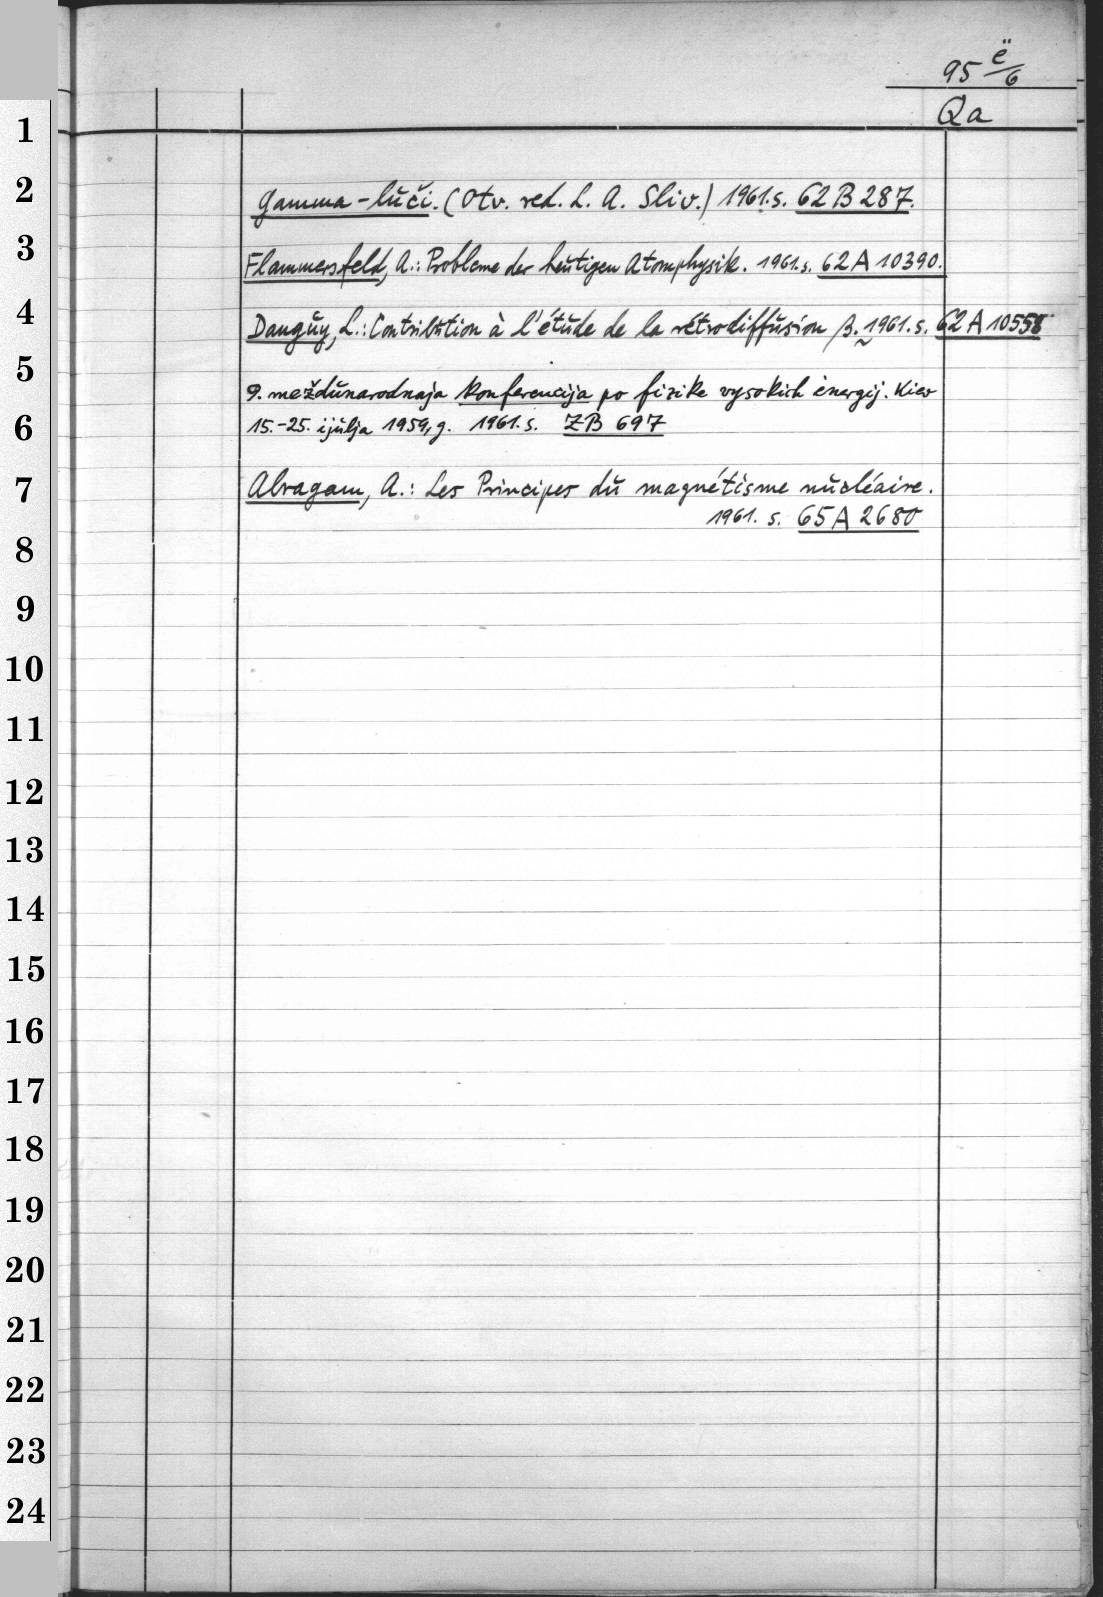 95 ë/6
Qa
1
2 Gamma-luči. (Otv. red. L. A. Sliv.) 1961. s. 62 B 287.
3 Flammersfeld, A.: Probleme der heutigen Atomphysik. 1961. s. 62 A 10390.
4 Danguy, L.: Contribution à l'étude de la rétrodiffusion β. 1961. s. 62 A 10558
5 9. meždunarodnaja konferencija po fizike vysokich ėnergij. Kiev
6 15.-25. ijulja 1959, g. 1961. s. ZB 697
7 Abragam, A.: Les Principes du magnétisme nucléaire.
1961. s. 65 A 2680
8
9
10
11
12
13
14
15
16
17
18
19
20
21
22
23
24